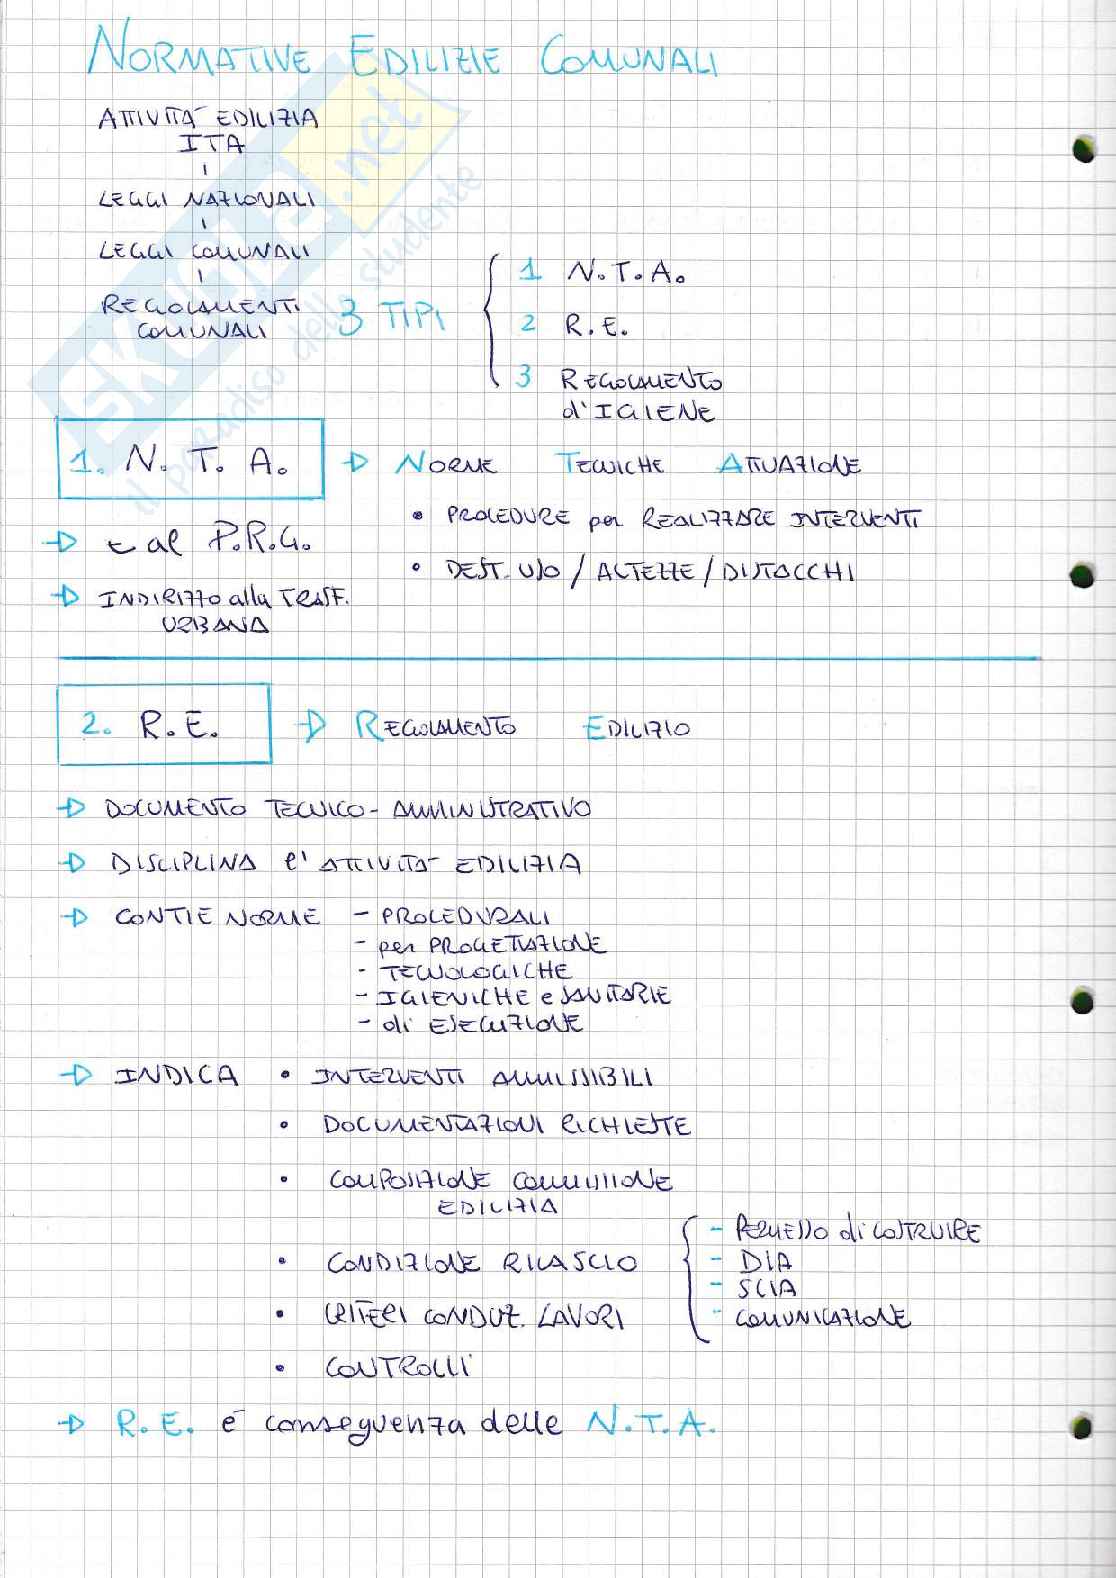 NORMATIVE EDILIZIE COMUNALI
ATTIVITÀ EDILIZIA
ITA
LEGGI NAZIONALI
LEGGI COMUNALI
REGOLAMENTI
COMUNALI
3 TIPI
1 N.T.A.
2 R.E.
3 REGOLAMENTO
d'IGIENE
skuola.net
il paradiso dello studente
1. N. T. A. NORME TECNICHE ATTUAZIONE
• PROCEDURE per REALIZZARE INTERVENTI
al P.R.G.
• DEST. USO / ALTEZZE / DISTACCHI
INDIRIZZO alla TRASF.
URBANA
2. R.E. REGOLAMENTO EDILIZIO
DOCUMENTO TECNICO-AMMINISTRATIVO
DISCIPLINA l'ATTIVITÀ EDILIZIA
CONTIE NORME - PROCEDURALI
- per PROGETTAZIONE
- TECNOLOGICHE
- IGIENICHE e SANITARIE
- di ESECUZIONE
INDICA • INTERVENTI AMMISSIBILI
• DOCUMENTAZIONI RICHIESTE
• COMPOSIZIONE COMMISSIONE
EDILIZIA
• CONDIZIONE RILASCIO
- PERMESSO di COSTRUIRE
- DIA
- SCIA
- COMUNICAZIONE
• CRITERI CONDUZ. LAVORI
• CONTROLLI
R.E. è conseguenza delle N.T.A.